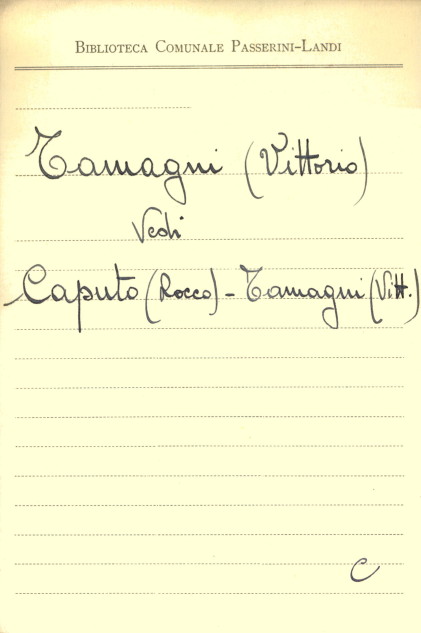 BIBLIOTECA COMUNALE PASSERINI-LANDI
Tamagni (Vittorio)
Vedi
Caputo (Rocco) - Tamagni (Vitt.)
C